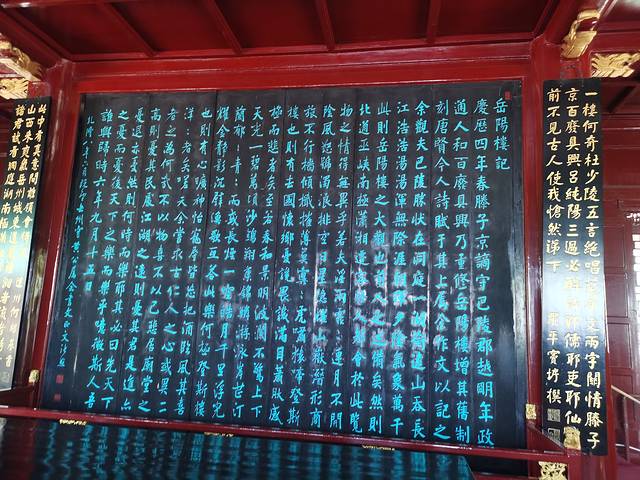 一樓何奇杜少陵五言絕唱范希文兩字關情滕子
京百廢具興呂純陽三過必醉詩耶儒耶吏耶仙耶
前不見古人使我愴然涕下
竇垿撰
岳陽樓記
慶歷四年春滕子京謫守巴陵郡越明年政
通人和百廢具興乃重修岳陽樓增其舊制
刻唐賢今人詩賦于其上屬余作文以記之
余觀夫巴陵勝狀在洞庭一湖銜遠山吞長
江浩浩湯湯渾無際涯朝暉夕陰氣象萬千
此則岳陽樓之大觀也前人之述備矣然則
北通巫峽南極瀟湘遷客騷人多會於此覽
物之情得無異乎若夫霪雨霏霏連月不開
陰風怒號濁浪排空日星隱耀山嶽潛形商
旅不行檣傾楫摧薄暮冥冥虎嘯猿啼登斯
樓也則有去國懷鄉憂讒畏譏滿目蕭然感
極而悲者矣至若春和景明波瀾不驚上下
天光一碧萬頃沙鷗翔集錦鱗游泳岸芷汀
蘭郁郁青青而或長烟一空皓月千里浮光
耀金靜影沉璧漁歌互答此樂何極登斯樓
也則有心曠神怡寵辱皆忘把酒臨風其喜
洋洋者矣嗟夫余嘗求古仁人之心或異二
者之為何哉不以物喜不以己悲居廟堂之
高則憂其民處江湖之遠則憂其君是進亦
憂退亦憂然則何時而樂耶其必曰先天下
之憂而憂後天下之樂而樂乎噫微斯人吾
誰與歸時六年九月十五日
諸君試看洞庭湖南極瀟湘
山西來爽氣岳州城東道巖疆
此中有真意問誰領會得來